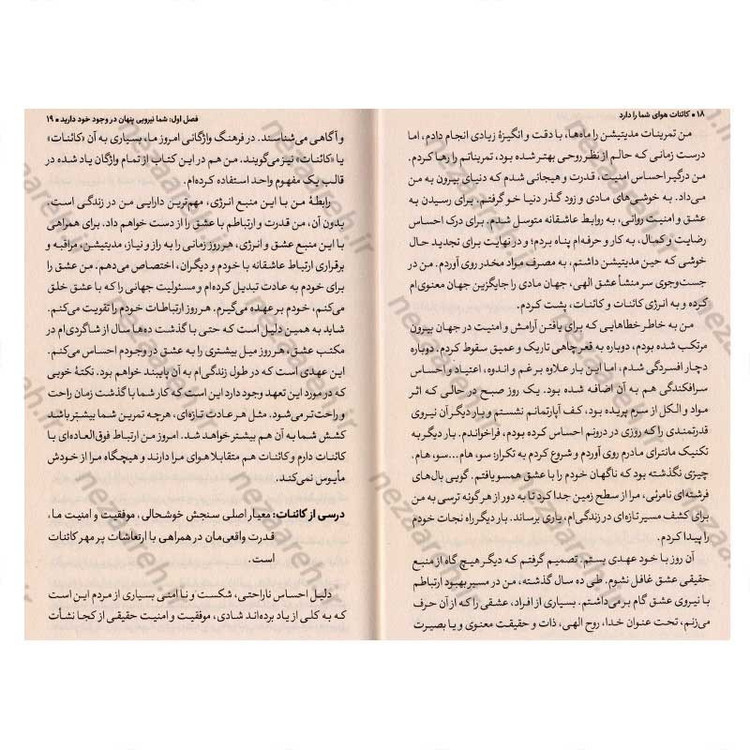 ۱۸ • کائنات هوای شما را دارد
من تمرینات مدیتیشن را ماه‌ها، با دقت و انگیزهٔ زیادی انجام دادم، اما
درست زمانی که حالم از نظر روحی بهتر شده بود، تمریناتم را رها کردم.
من درگیر احساس امنیت، قدرت و هیجانی شدم که دنیای بیرون به من
می‌داد. به خوشی‌های مادی و زود گذر دنیا خو گرفتم. برای رسیدن به
عشق و امنیت روانی، به روابط عاشقانه متوسل شدم. برای درک احساس
رضایت و کمال، به کار و حرفه‌ام پناه بردم؛ و در نهایت برای تجدید حال
خوشی که حین مدیتیشن داشتم، به مصرف مواد مخدر روی آوردم. من در
جست‌وجوی سرمنشأ عشق الهی، جهان مادی را جایگزین جهان معنوی‌ام
کرده و به انرژی کائنات و کائنات، پشت کردم.
من به خاطر خطاهایی که برای یافتن آرامش و امنیت در جهان بیرون
مرتکب شده بودم، دوباره به قعر چاهی تاریک و عمیق سقوط کردم. دوباره
دچار افسردگی شدم، اما این بار علاوه بر غم و اندوه، اعتیاد و احساس
سرافکندگی هم به آن اضافه شده بود. یک روز صبح در حالی که اثر
مواد و الکل از سرم پریده بود، کف آپارتمانم نشستم و بار دیگر آن نیروی
قدرتمندی را که روزی در درونم احساس کرده بودم، فراخواندم. بار دیگر به
تکنیک مانترای مادرم روی آوردم و شروع کردم به تکرار: سو، هام...سو، هام.
چیزی نگذشته بود که ناگهان خودم را با عشق همسو یافتم. گویی بال‌های
فرشته‌ای نامرئی، مرا از سطح زمین جدا کرد تا به دور از هرگونه ترسی به من
برای کشف مسیر تازه‌ای در زندگی‌ام، یاری برساند. بار دیگر راه نجات خودم
را پیدا کردم.
آن روز با خود عهدی بستم. تصمیم گرفتم که دیگر هیچ گاه از منبع
حقیقی عشق غافل نشوم. طی ده سال گذشته، من در مسیر بهبود ارتباطم
با نیروی عشق گام برمی‌داشتم. بسیاری از افراد، عشقی را که از آن حرف
می‌زنم، تحت عنوان خدا، روح الهی، ذات و حقیقت معنوی و یا بصیرت
فصل اول: شما نیرویی پنهان در وجود خود دارید • ۱۹
و آگاهی می‌شناسند. در فرهنگ واژگانی امروز ما، بسیاری به آن «کائنات»
یا «کائنات» نیز می‌گویند. من هم در این کتاب از تمام واژگان یاد شده در
قالب یک مفهوم واحد استفاده کرده‌ام.
رابطهٔ من با این منبع انرژی، مهم‌ترین دارایی من در زندگی است.
بدون آن، من قدرت و ارتباطم با عشق را از دست خواهم داد. برای همراهی
با این منبع عشق و انرژی، هر روز زمانی را به راز و نیاز، مدیتیشن، مراقبه و
برقراری ارتباط عاشقانه با خودم و دیگران، اختصاص می‌دهم. من عشق را
برای خودم به عادت تبدیل کرده‌ام و مسئولیت جهانی را که با عشق خلق
می‌کنم، خودم بر عهده می‌گیرم. هر روز ارتباطات خودم را تقویت می‌کنم.
شاید به همین دلیل است که حتی با گذشت ده‌ها سال از شاگردی‌ام در
مکتب عشق، هر روز میل بیشتری را به عشق در وجودم احساس می‌کنم.
این عهدی است که در طول زندگی‌ام به آن پایبند خواهم بود. نکتهٔ خوبی
که در مورد این تعهد وجود دارد این است که کار شما با گذشت زمان راحت
و راحت‌تر می‌شود. مثل هر عادت تازه‌ای، هرچه تمرین شما بیشتر باشد
کشش شما به آن هم بیشتر خواهد شد. امروز من ارتباط فوق‌العاده‌ای با
کائنات دارم و کائنات هم متقابلا هوای مرا دارند و هیچگاه مرا از خودش
مأیوس نمی‌کند.
درسی از کائنات: معیار اصلی سنجش خوشحالی، موفقیت و امنیت ما،
قدرت واقعی‌مان در همراهی با ارتعاشات پر مهر کائنات
است.
دلیل احساس ناراحتی، شکست و ناامنی بسیاری از مردم این است
که به کلی از یاد برده‌اند شادی، موفقیت و امنیت حقیقی از کجا نشأت
nezaareh.ir